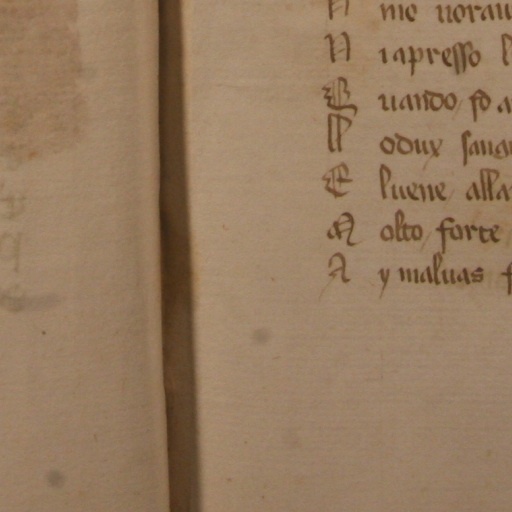 N me uorau
N iapresso l
E uando fo a
M odux sangu
E luene alla
M olto forte
A y maluas f